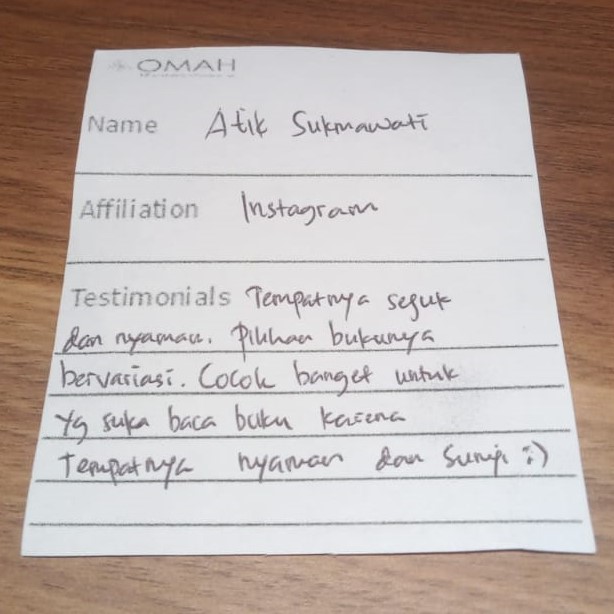 OMAH
Name Atik Sukmawati
Affiliation Instagram
Testimonials Tempatnya sejuk
dan nyaman. Pilihan bukunya
bervariasi. Cocok banget untuk
yg suka baca buku karena
Tempatnya nyaman dan sunyi :)